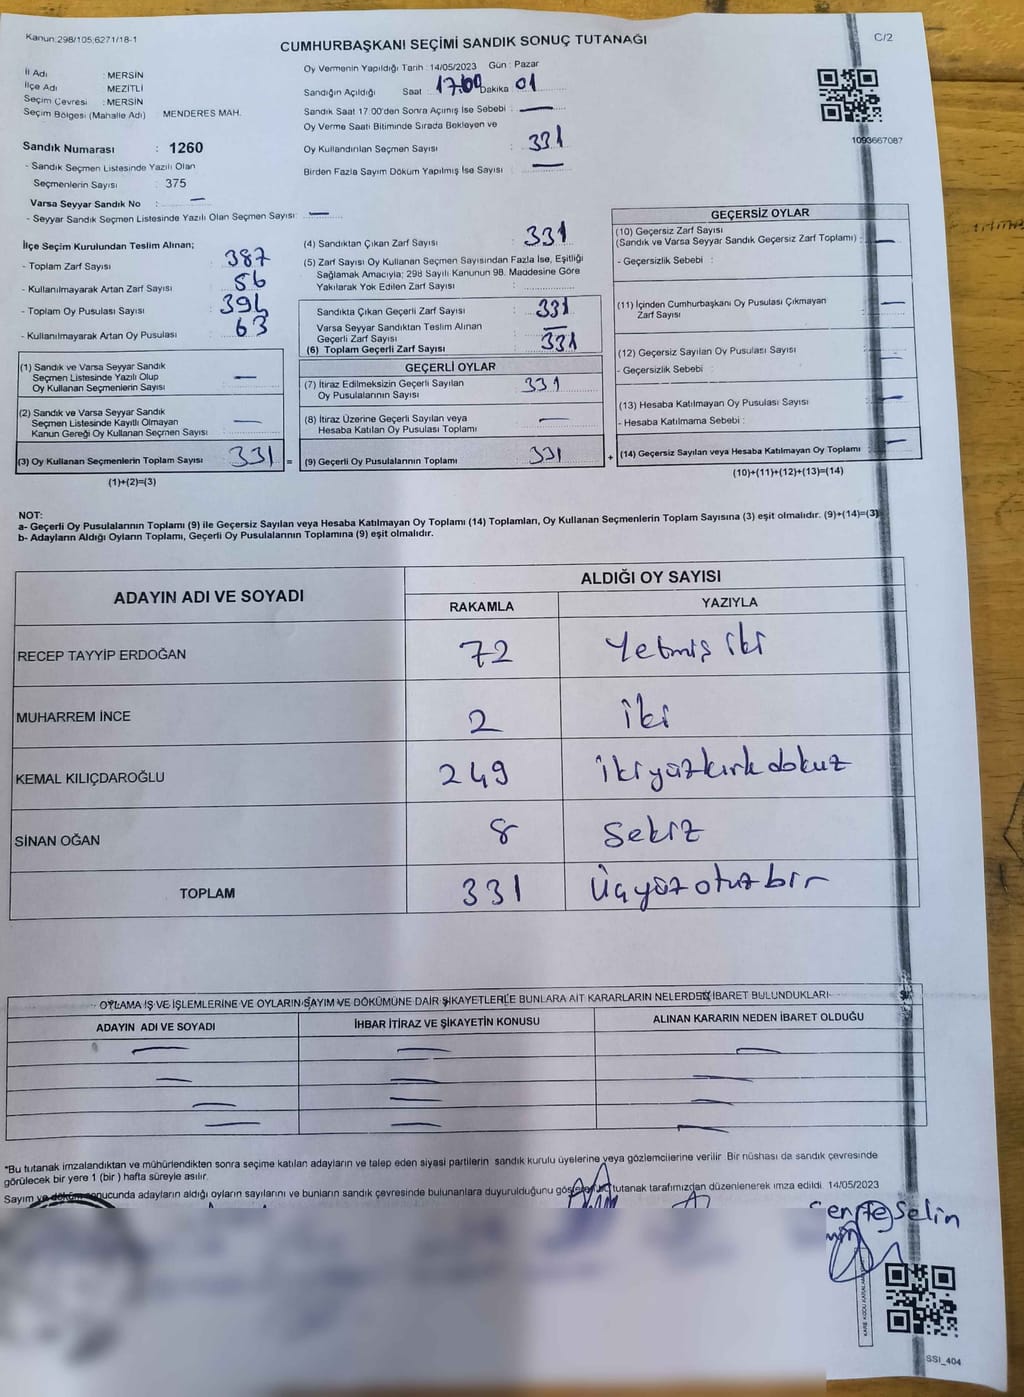 Kanun:298/105;6271/18-1
C/2
CUMHURBAŞKANI SEÇİMİ SANDIK SONUÇ TUTANAĞI
İl Adı : MERSİN
İlçe Adı : MEZİTLİ
Seçim Çevresi : MERSİN
Seçim Bölgesi (Mahalle Adı) MENDERES MAH.
Oy Vermenin Yapıldığı Tarih : 14/05/2023 Gün : Pazar
Sandığın Açıldığı Saat 17.00 Dakika 01
Sandık Saat 17:00'den Sonra Açımış İse Sebebi : —
Oy Verme Saati Bitiminde Sırada Bekleyen ve
Oy Kullandırılan Seçmen Sayısı : 331
Birden Fazla Sayım Döküm Yapılmış İse Sayısı : —
1093667087
Sandık Numarası : 1260
- Sandık Seçmen Listesinde Yazılı Olan
Seçmenlerin Sayısı : 375
Varsa Seyyar Sandık No : —
- Seyyar Sandık Seçmen Listesinde Yazılı Olan Seçmen Sayısı: —
İlçe Seçim Kurulundan Teslim Alınan;
- Toplam Zarf Sayısı : 387
- Kullanılmayarak Artan Zarf Sayısı : 56
- Toplam Oy Pusulası Sayısı : 394
- Kullanılmayarak Artan Oy Pusulası : 63
(1) Sandık ve Varsa Seyyar Sandık
Seçmen Listesinde Yazılı Olup
Oy Kullanan Seçmenlerin Sayısı —
(2) Sandık ve Varsa Seyyar Sandık
Seçmen Listesinde Kayıtlı Olmayan
Kanun Gereği Oy Kullanan Seçmen Sayısı —
(3) Oy Kullanan Seçmenlerin Toplam Sayısı 331 =
(1)+(2)=(3)
(4) Sandıktan Çıkan Zarf Sayısı : 331
(5) Zarf Sayısı Oy Kullanan Seçmen Sayısından Fazla İse, Eşitliği
Sağlamak Amacıyla; 298 Sayılı Kanunun 98. Maddesine Göre
Yakılarak Yok Edilen Zarf Sayısı :
Sandıkta Çıkan Geçerli Zarf Sayısı : 331
Varsa Seyyar Sandıktan Teslim Alınan
Geçerli Zarf Sayısı : —
(6) Toplam Geçerli Zarf Sayısı : 331
GEÇERLİ OYLAR
(7) İtiraz Edilmeksizin Geçerli Sayılan
Oy Pusulalarının Sayısı 331
(8) İtiraz Üzerine Geçerli Sayılan veya
Hesaba Katılan Oy Pusulası Toplamı —
(9) Geçerli Oy Pusulalarının Toplamı 331 +
GEÇERSİZ OYLAR
(10) Geçersiz Zarf Sayısı
(Sandık ve Varsa Seyyar Sandık Geçersiz Zarf Toplamı) : —
- Geçersizlik Sebebi :
(11) İçinden Cumhurbaşkanı Oy Pusulası Çıkmayan
Zarf Sayısı —
(12) Geçersiz Sayılan Oy Pusulası Sayısı —
- Geçersizlik Sebebi :
(13) Hesaba Katılmayan Oy Pusulası Sayısı —
- Hesaba Katılmama Sebebi :
(14) Geçersiz Sayılan veya Hesaba Katılmayan Oy Toplamı : —
(10)+(11)+(12)+(13)=(14)
NOT:
a- Geçerli Oy Pusulalarının Toplamı (9) ile Geçersiz Sayılan veya Hesaba Katılmayan Oy Toplamı (14) Toplamları, Oy Kullanan Seçmenlerin Toplam Sayısına (3) eşit olmalıdır. (9)+(14)=(3)
b- Adayların Aldığı Oyların Toplamı, Geçerli Oy Pusulalarının Toplamına (9) eşit olmalıdır.
ADAYIN ADI VE SOYADI ALDIĞI OY SAYISI
RAKAMLA YAZIYLA
RECEP TAYYİP ERDOĞAN 72 Yetmiş iki
MUHARREM İNCE 2 İki
KEMAL KILIÇDAROĞLU 249 İkiyüzkırkdokuz
SİNAN OĞAN 8 Sekiz
TOPLAM 331 Üçyüzotuzbir
OYLAMA İŞ VE İŞLEMLERİNE VE OYLARIN SAYIM VE DÖKÜMÜNE DAİR ŞİKAYETLERLE BUNLARA AİT KARARLARIN NELERDEN İBARET BULUNDUKLARI
ADAYIN ADI VE SOYADI İHBAR İTİRAZ VE ŞİKAYETİN KONUSU ALINAN KARARIN NEDEN İBARET OLDUĞU
*Bu tutanak imzalandıktan ve mühürlendikten sonra seçime katılan adayların ve talep eden siyasi partilerin sandık kurulu üyelerine veya gözlemcilerine verilir. Bir nüshası da sandık çevresinde
görülecek bir yere 1 (bir ) hafta süreyle asılır.
Sayım ve döküm sonucunda adayların aldığı oyların sayılarını ve bunların sandık çevresinde bulunanlara duyurulduğunu gösterir bu tutanak tarafımızdan düzenlenerek imza edildi. 14/05/2023
Selin
SSI_404